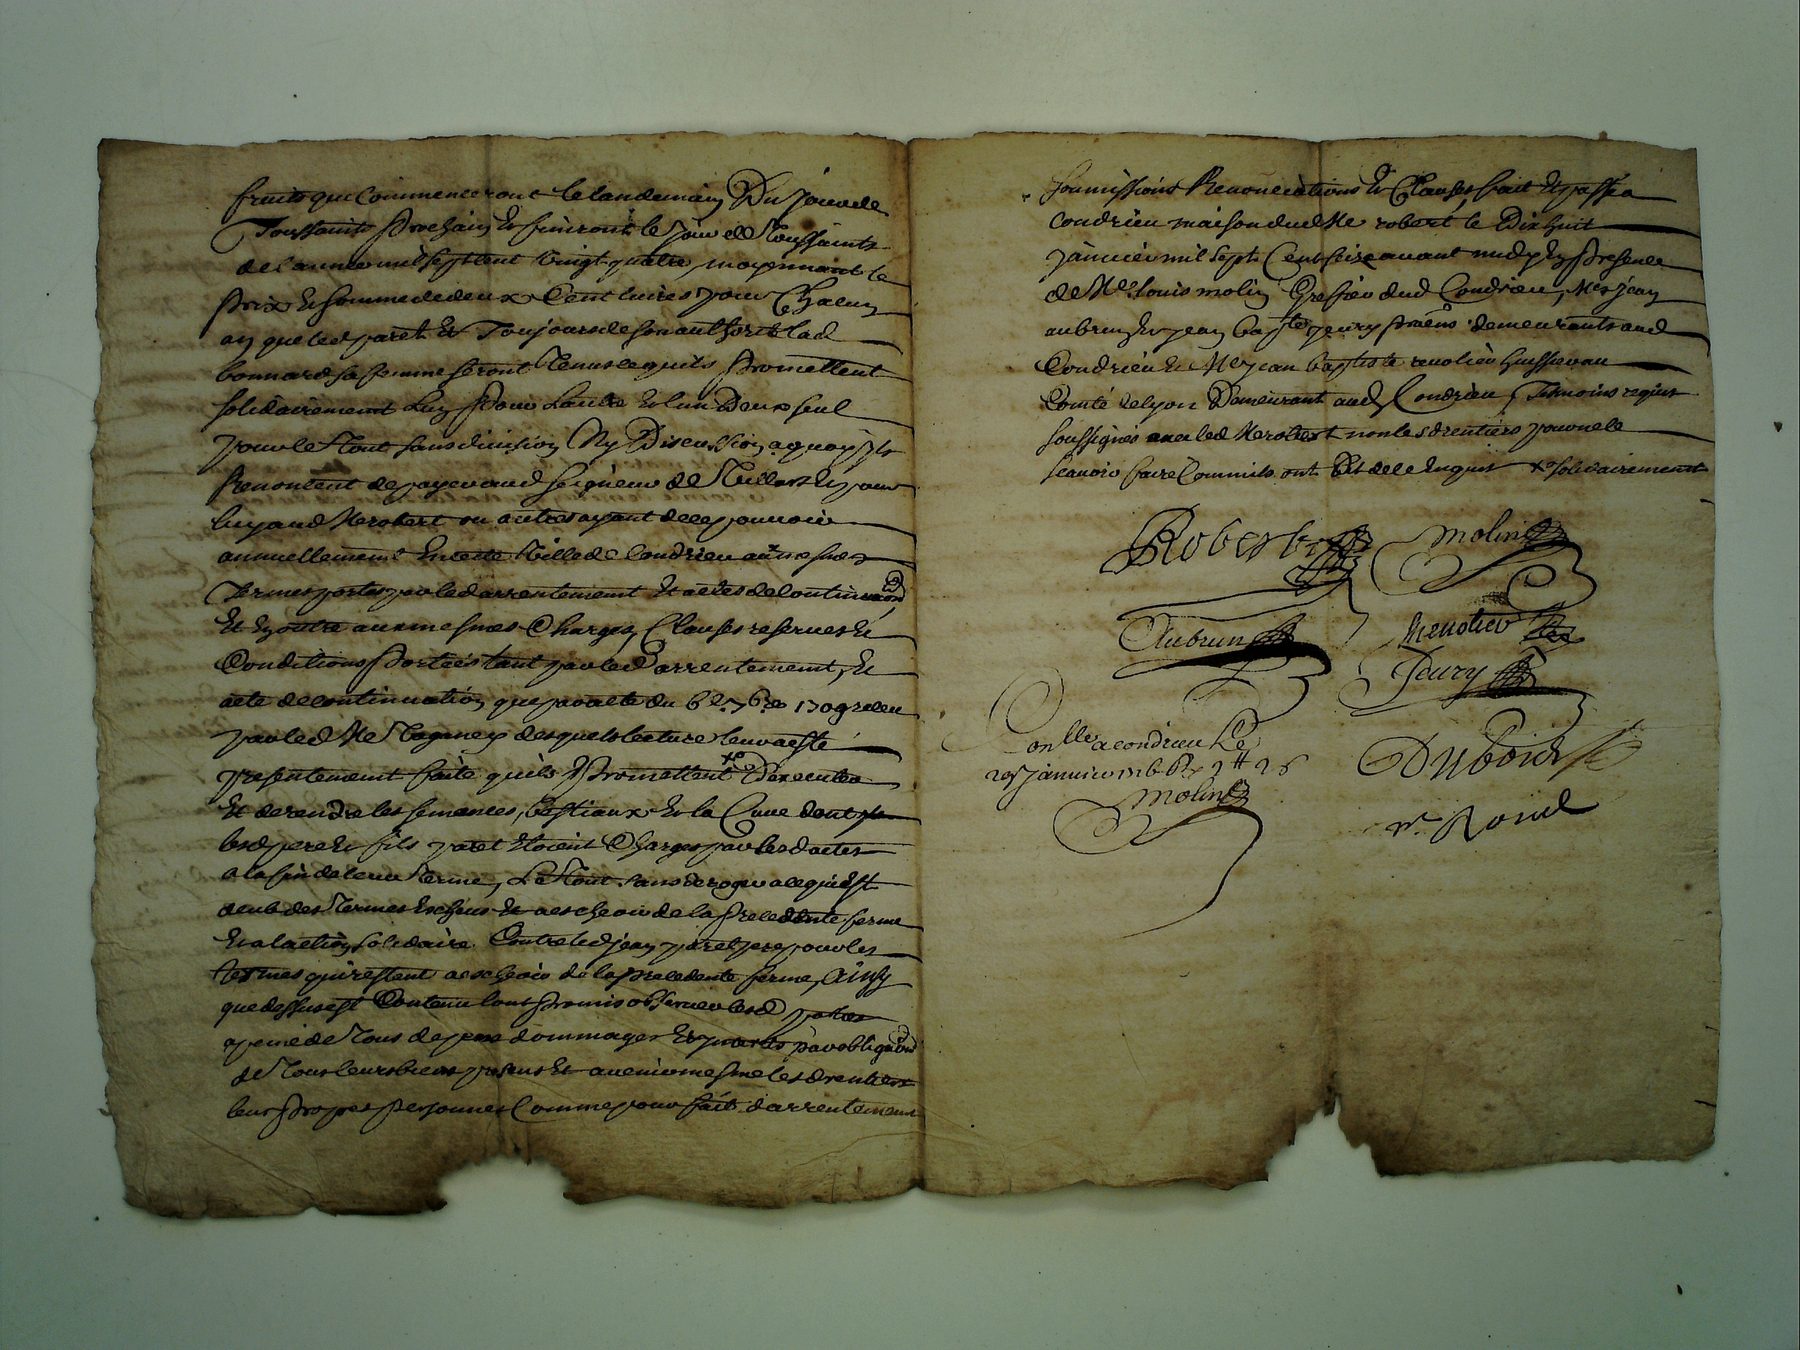 fruits que commenceront le landemain Du jour de
Toussaint prochain Et finiront le jour de Toussaints
de l'annee mil sept cent vingt quatre moyennant le
prix Et somme de deux Cent livres pour Chacun
an que led paret Et Toujours de son authorité lad
bonnard sa femme seront Tenus ce quils promettent
solidairement Lun pour Lautre Et lun Deux seul
pour le Tout sans division Ny Discussion a quoy ils
Renoncent de payer aud seigneur de Villars Et pour
luy aud Me robert ou autres ayant de ce pouvoir
annuellement En cette Ville de Condrieu aux mesmes
Termes portes par led arrentement Et actes de continuaon
Et En outre aux mesmes Charges Clauses reserves Et
Conditions portées tant par led arrentement, Et
acte de continuation que par acte du 6e 7bre 1709 receu
par led Me desquels lecture leur a esté
presentement faite quils promettent +o D'executer
Et de rendre les semences, bestiaux Et la Cuve dont
lesd pere Et fils paret Etoient Charges par lesd actes
a la fin de leur Terme, Le Tout sans deroger a ce qui Est
deub des Termes Escheus Et a escheoir de la precedente ferme
Et a laction solidaire Contre led jean paret pere pour les
termes qui restent a escheoir de la precedente ferme, Ainsy
que dessus est Contenu lont promis observer lesd parties
a peine de Tous depens dommages Et par obligaon
de Tous leurs biens presens Et avenir mesme les d rentiers
leur propres personnes Comme pour fait d'arrentement
soumissions Renonciations Et Clauses fait Et passé a
condrieu maison dud Me robert le Dix huit
janvier mil sept Cent seize avant midy En presence
de Me louis molin Greffier dud Condrieu, Mes jean
aubrun Et jean bapte peury praens demeurants aud
Condrieu Et Me jean baptiste revolier huissier au
Comté de lyon Demeurant aud Condrieu Temoins requis
soussignés avec led Me robert non les d rentiers pour ne le
scavoir faire Comme ils ont Dit de ce Enquis +o solidairement
Robert Molin
Aubrun Revolier
Peury
Conlle a condrieu Le
janvier 1716
Molin
Dubois